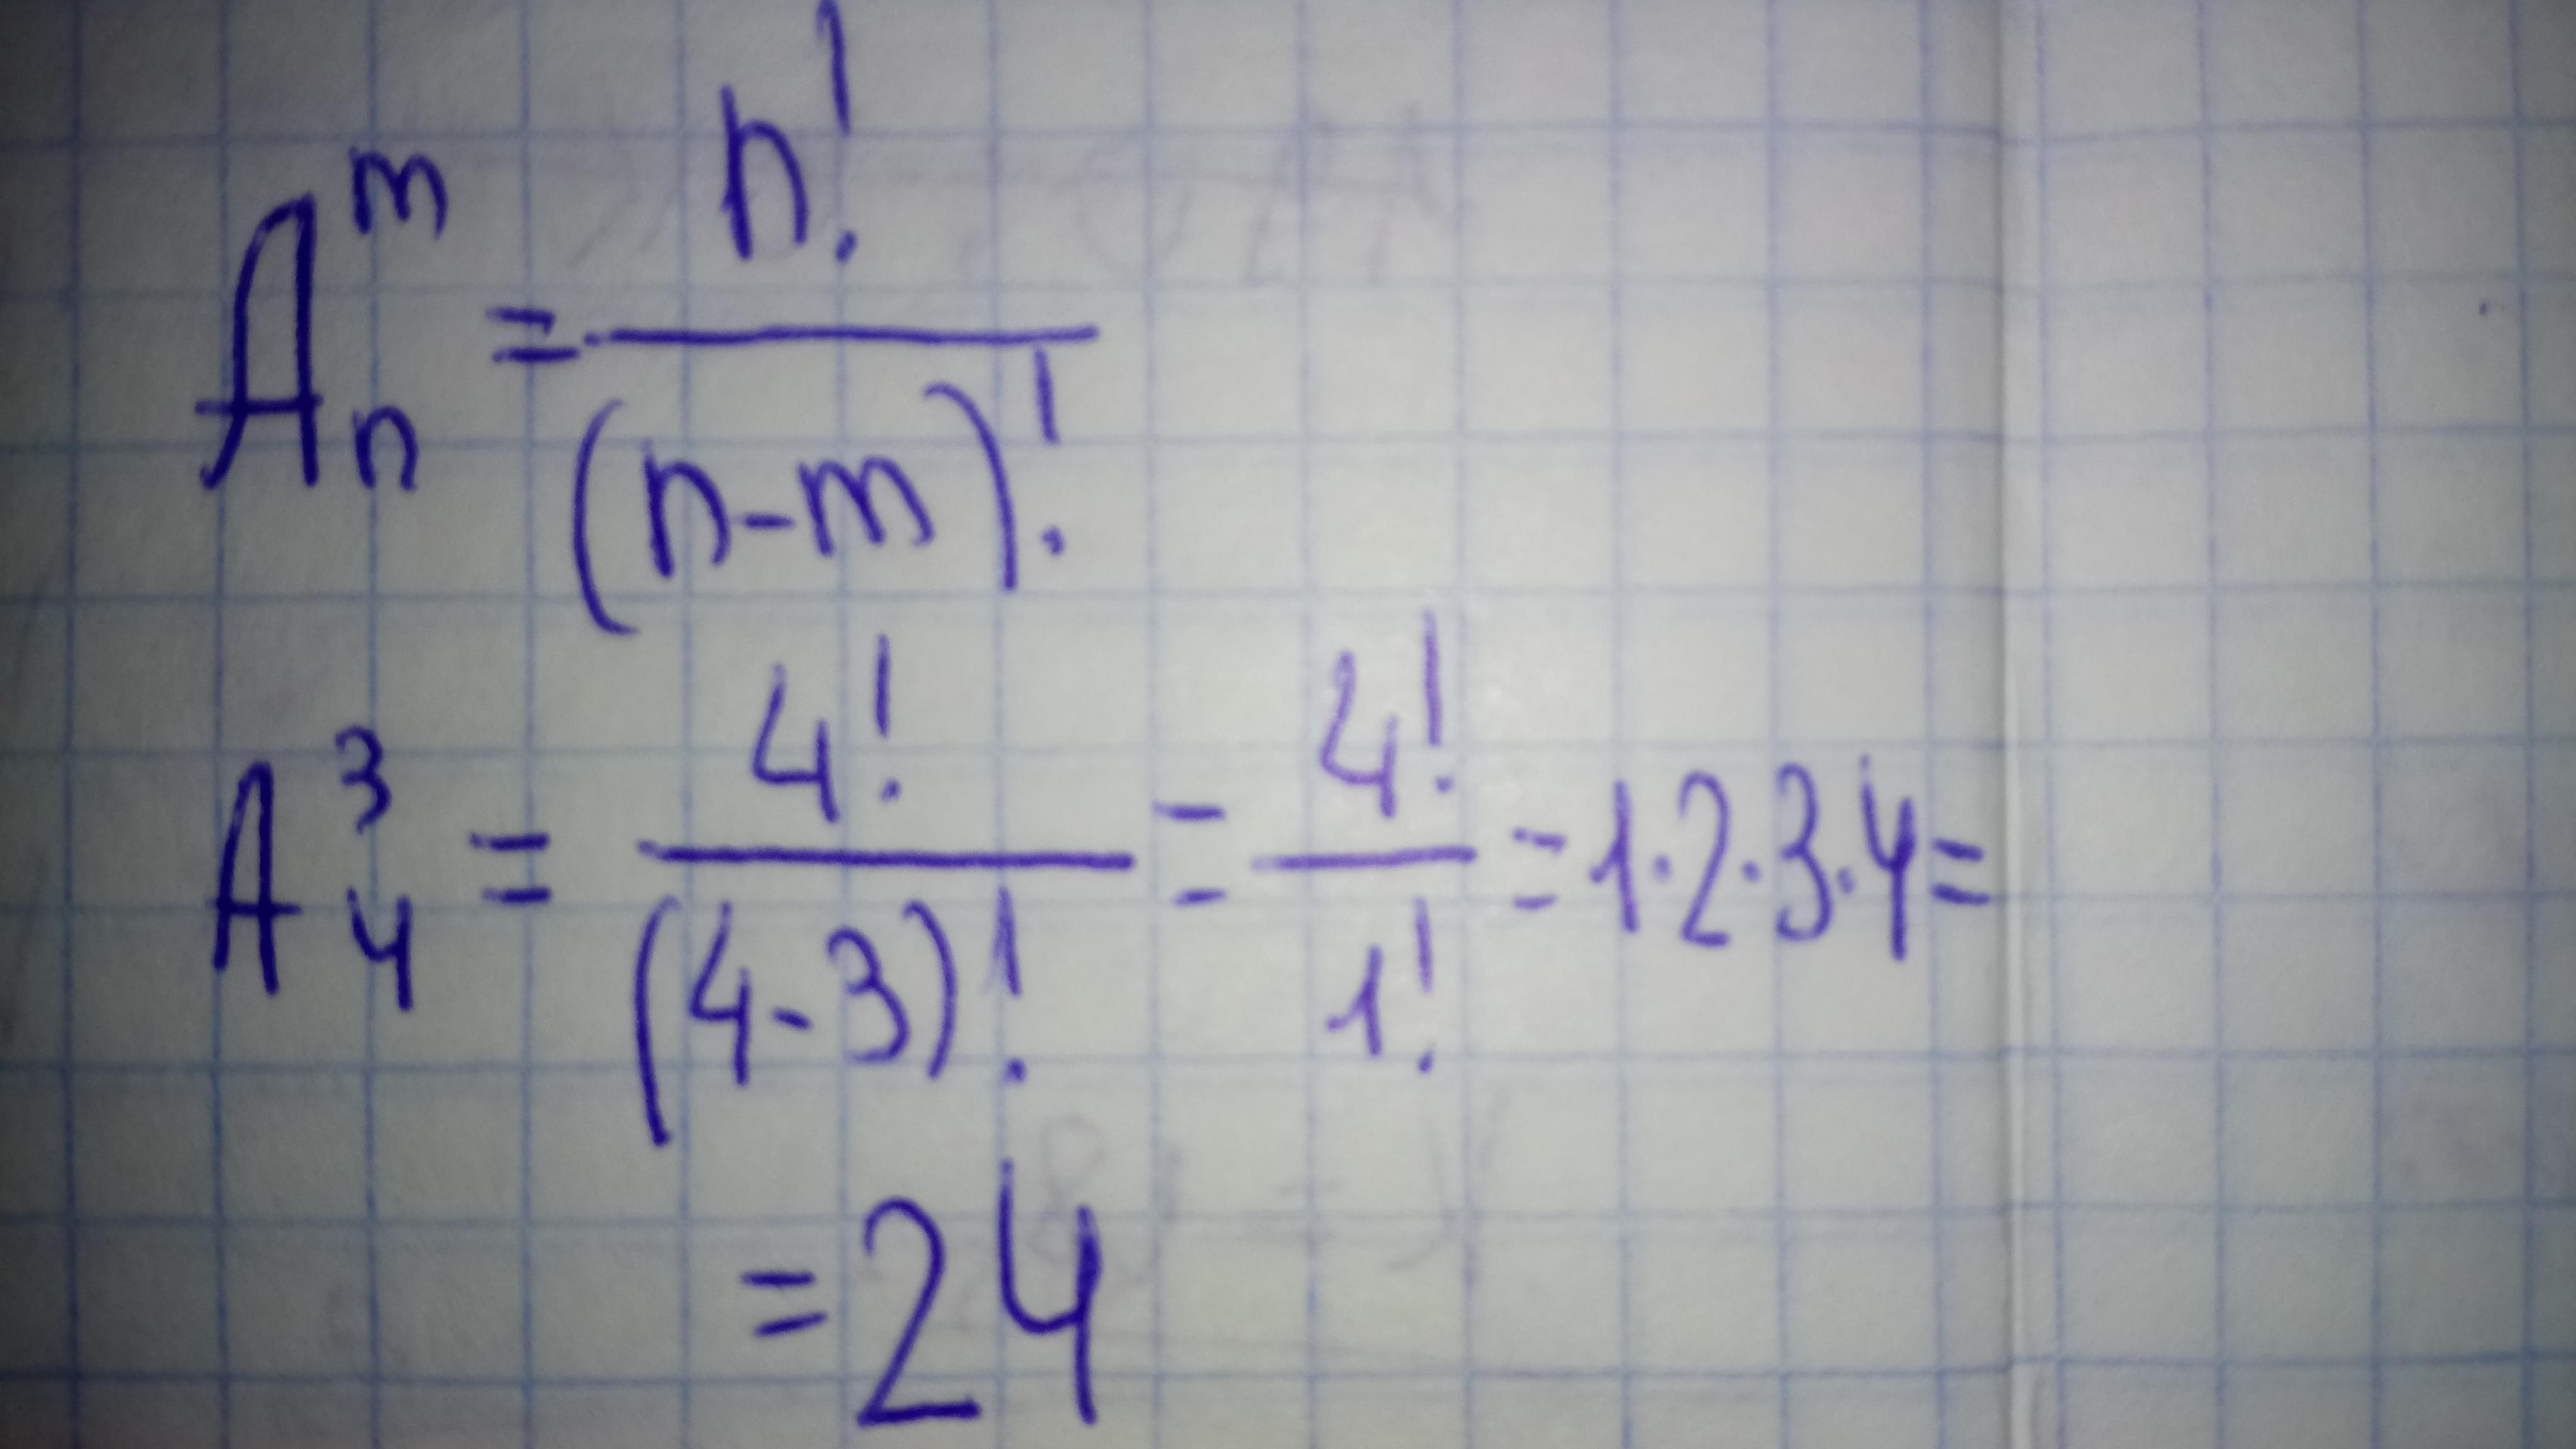 A_n^m = n! / (n-m)!
A_4^3 = 4! / (4-3)! = 4! / 1! = 1·2·3·4 =
= 24